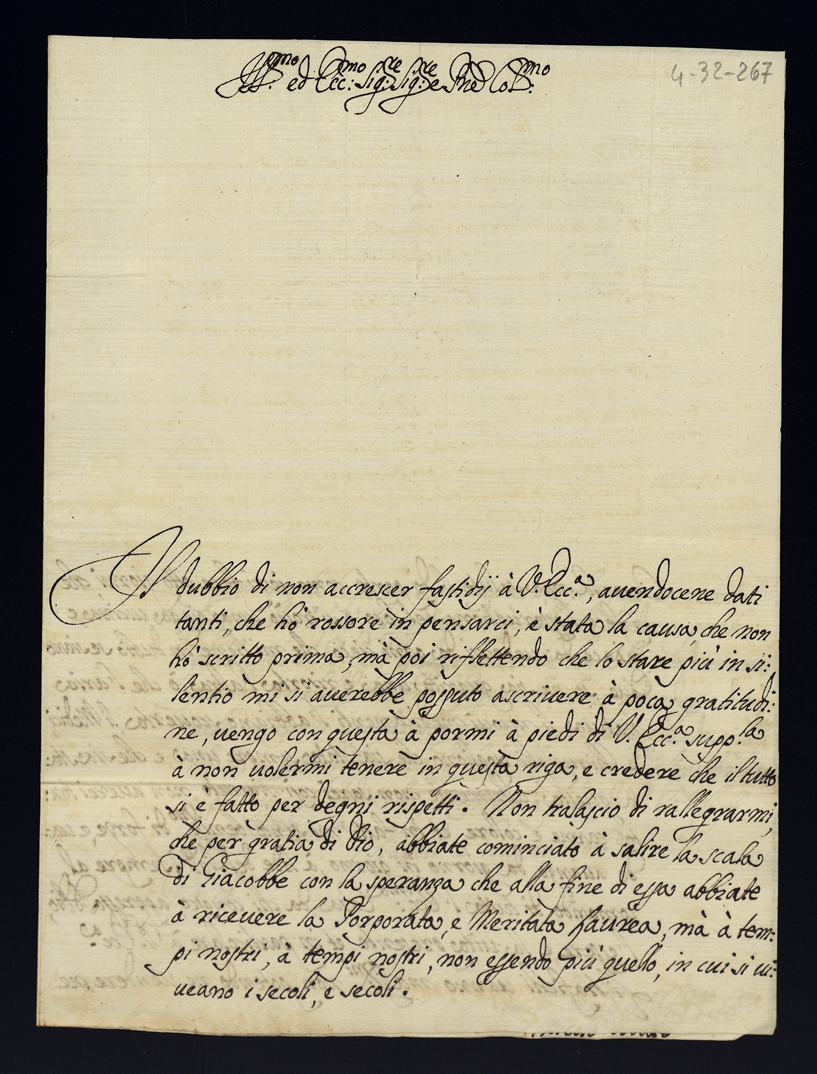 Ill.mo ed Ecc.mo Sig.re Sig.re e Pne Col.mo
4-32-267
Il dubbio di non accrescer fastidÿ à V. Ecc.a, auendocene dati
tanti, che hò rossore in pensarci, è stata la causa, che non
hò scritto prima, mà poi riflettendo che lo stare più in si:
lentio mi si auerebbe possuto ascriuere à poca gratitudi:
ne, uengo con questa à pormi à piedi di V. Ecc.a supp.la
à non uolermi tenere in questa riga, e credere che il tutto
si e fatto per degni rispetti. Non tralascio di rallegrarmi,
che per gratia di Dio, abbiate cominciato à salire la scala
di Giacobbe con la speranza che alla fine di essa abbiate
à riceuere la Porporata, e Meritata Laurea, mà à tem:
pi nostri, à tempi nostri, non essendo più quello, in cui si ui:
ueano i secoli, e secoli.